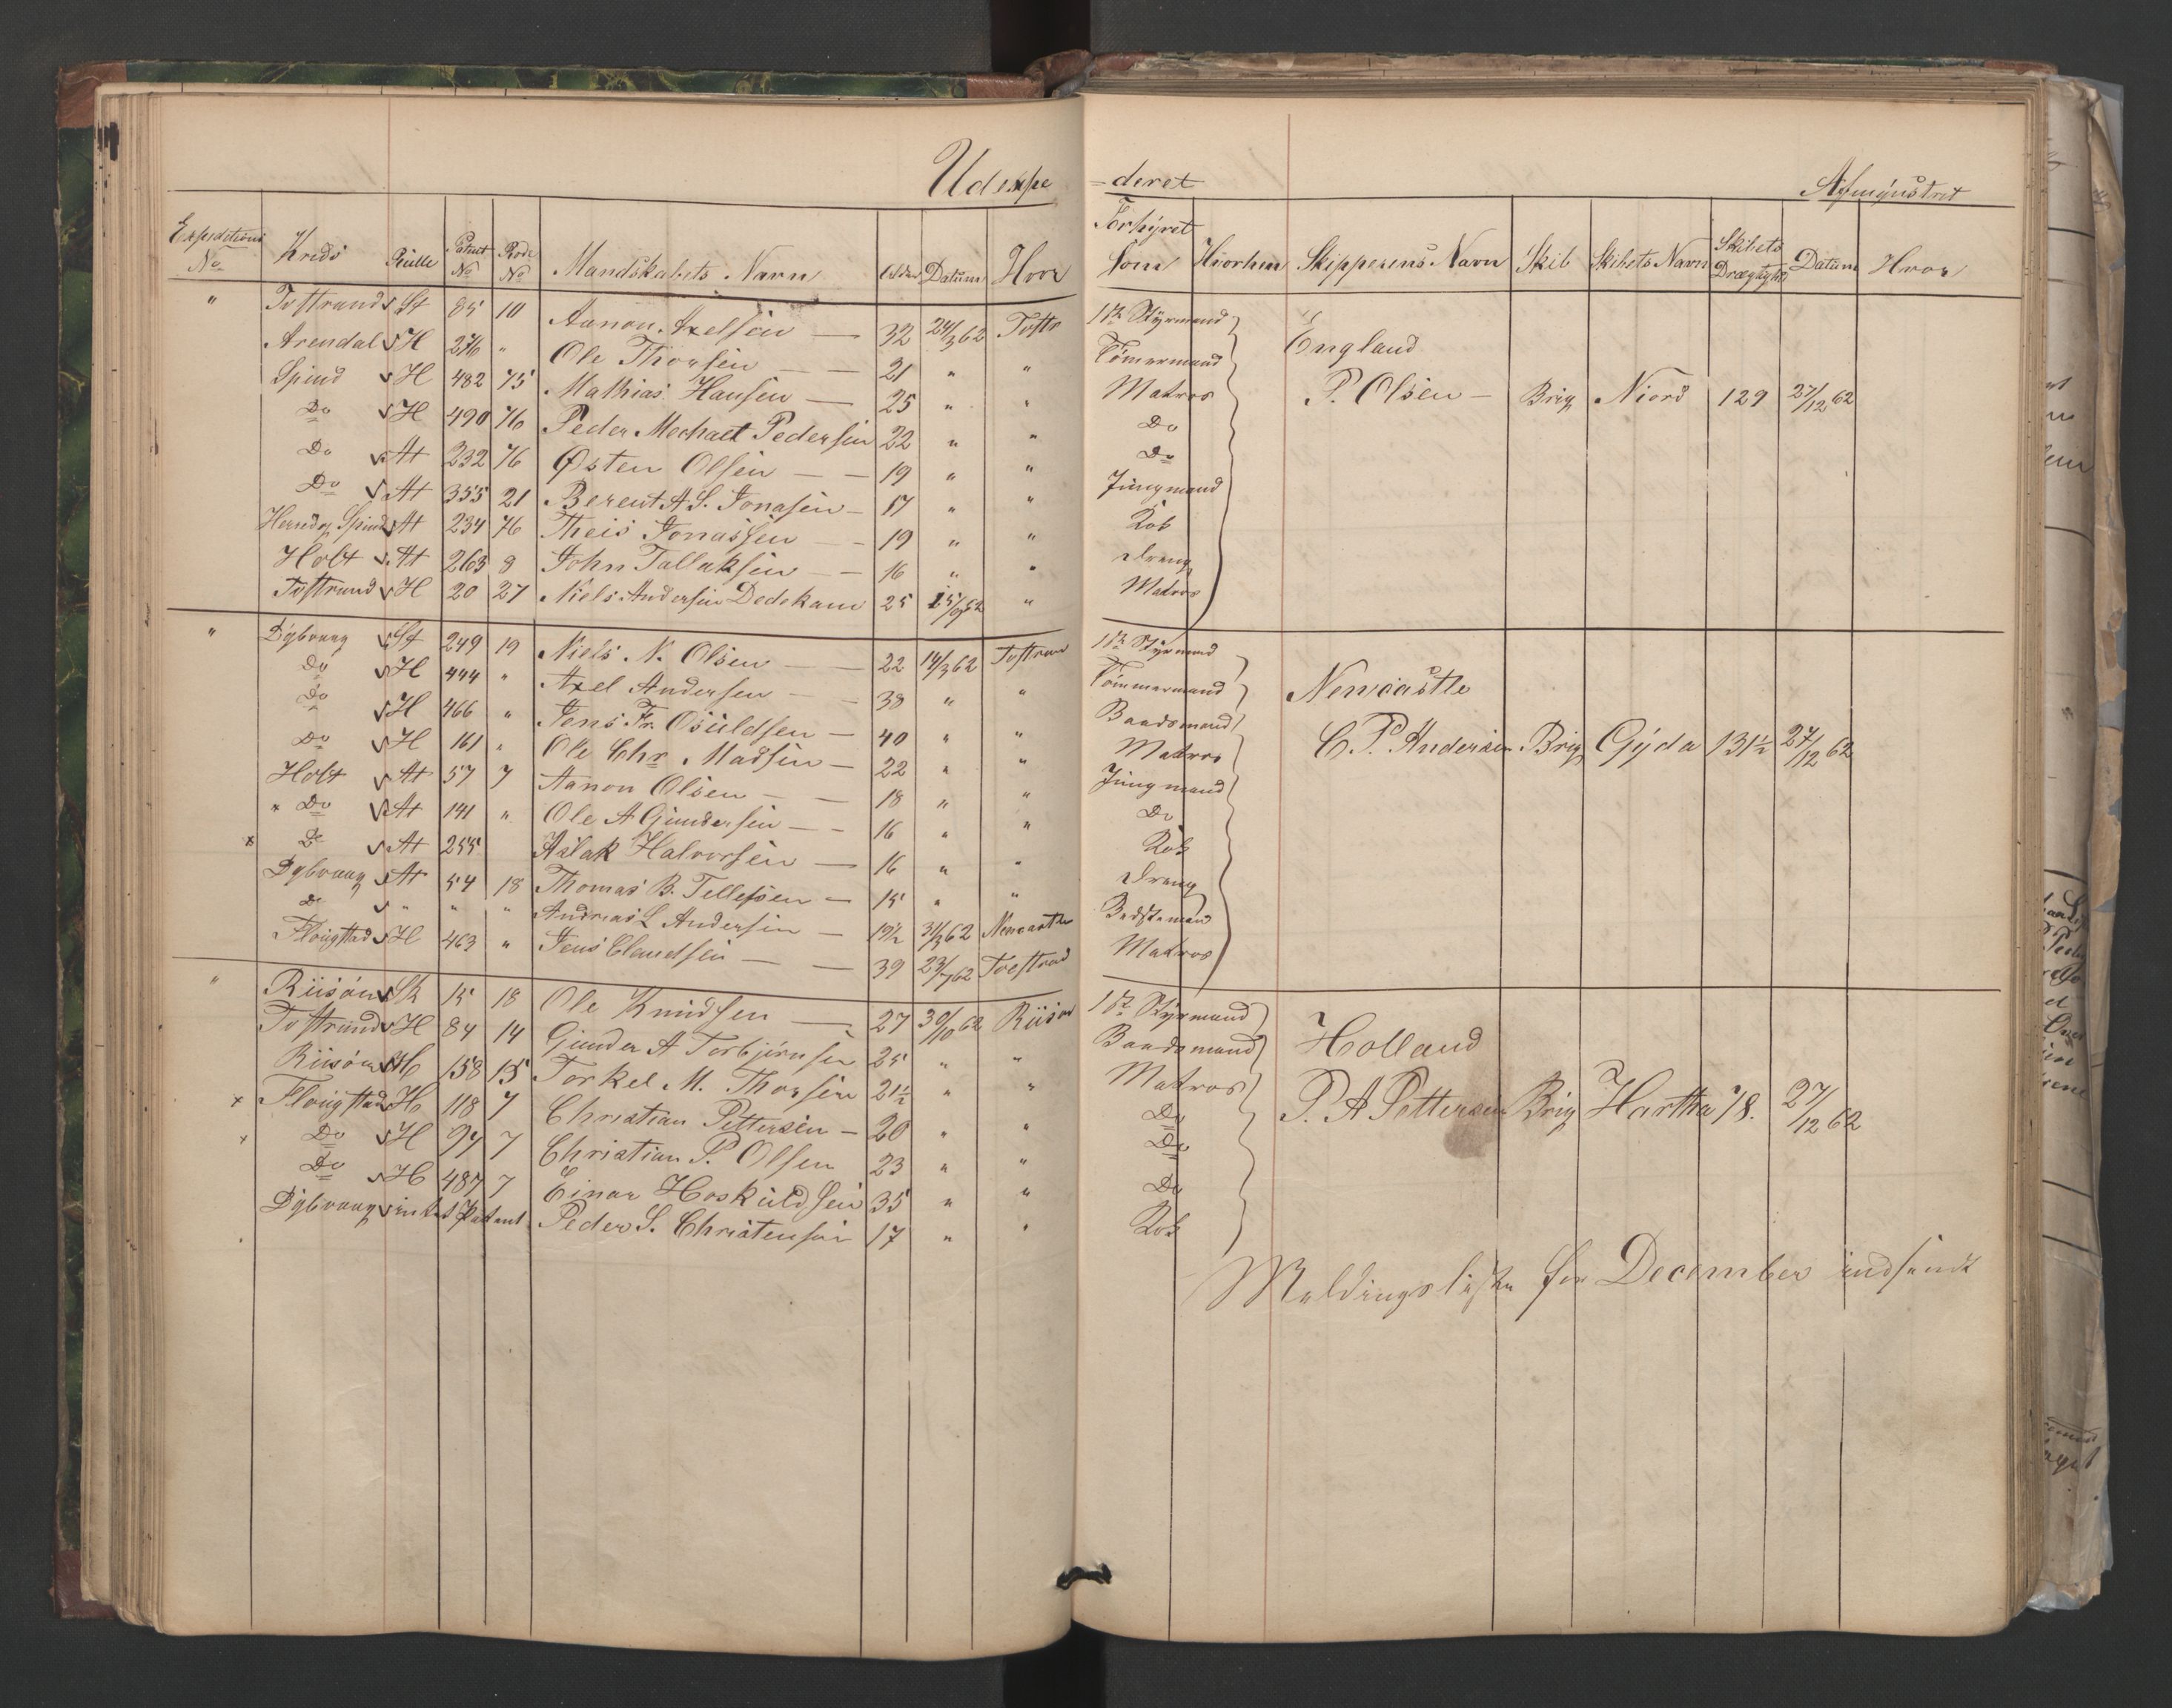 Udexpe -deret Afmynstret
Expeditions No Kreds Rulle Patent No Rode No Mandskabets Navn Alder Datum Hvor Forhyret Som Hvorhen Skipperens Navn Skib Skibets Navn Skibets Drægtighed Datum Hvor
" Tvestrand St 85 10 Aanon Axelsen — 32 24/3 62 Tvestr 1ste Styrmand
Arendal H 276 " Ole Thorsen — — 21 " " Tömmermand England
Spind H 482 75 Mathias Hansen — 25 " " Matros P. Olsen — Brig Niord 129 27/12 62
Do H 490 76 Peder Mechael Pedersen 22 " " Do
Do At 232 76 Østen Olsen — — 19 " " Do
Do At 355 21 Berent A S. Jonasen — 17 " " Jüngmand
Herred Spind At 234 76 Theis Jonassen — 19 " " Kok
Holt At 263 8 John Tallaksen — 16 " " Dreng
Tvestrand H 20 27 Niels Andersen Dedekam 25 15/9 62 " Matros
" Dybvaag St 249 19 Niels N. Olsen — — 22 14/3 62 Tvestran 1ste Styrmand
Do H 444 " Axel Andersen — 38 " " Tömmermand Newcastle
Do H 466 " Jens Fr. Osüldsen — 40 " " Baadsmand C. P. Andersen Brig Gyda 131½ 27/12 62
Do H 161 " Ole Chr Madsen — 22 " " Matros
Holt At 57 7 Aanon Olsen — — 18 " " Jüngmand
x Do At 141 " Ole A Gundersen — — 16 " " Do
x Do At 255 Aslak Halvorsen — 16 " " Kok
Dybvaag At 54 18 Thomas B. Tellefsen — 15 " " Dreng
Do " " " Andreas L Andersen — 19½ 31/3 62 Newcastle Bedstemand
Flougstad H 463 " Jens Claudsen — — 39 23/7 62 Tvestrad Matros
" Riisöer SR 15 18 Ole Knudsen — 27 30/10 62 Riisör 1ste Styrmand
Tvestrand H 84 14 Gunder A Torbjörnsen 25 " " Baadsmand Holland
Riisöer H 158 15 Torkel M. Thorsen 21½ " " Matros P. A Pettersen Brig Hartha 78. 27/12 62
x Flougstad H 118 7 Christian Pettersen — 20 " " Do
x Do H 94 7 Christian P. Olsen 23 " " Do
Do H 487 7 Einar Hosküldsen 35 " " Do
Dybvaag intet Patent Peder S. Christensen 17 " " Kok
Meldingsliste for December indsendt